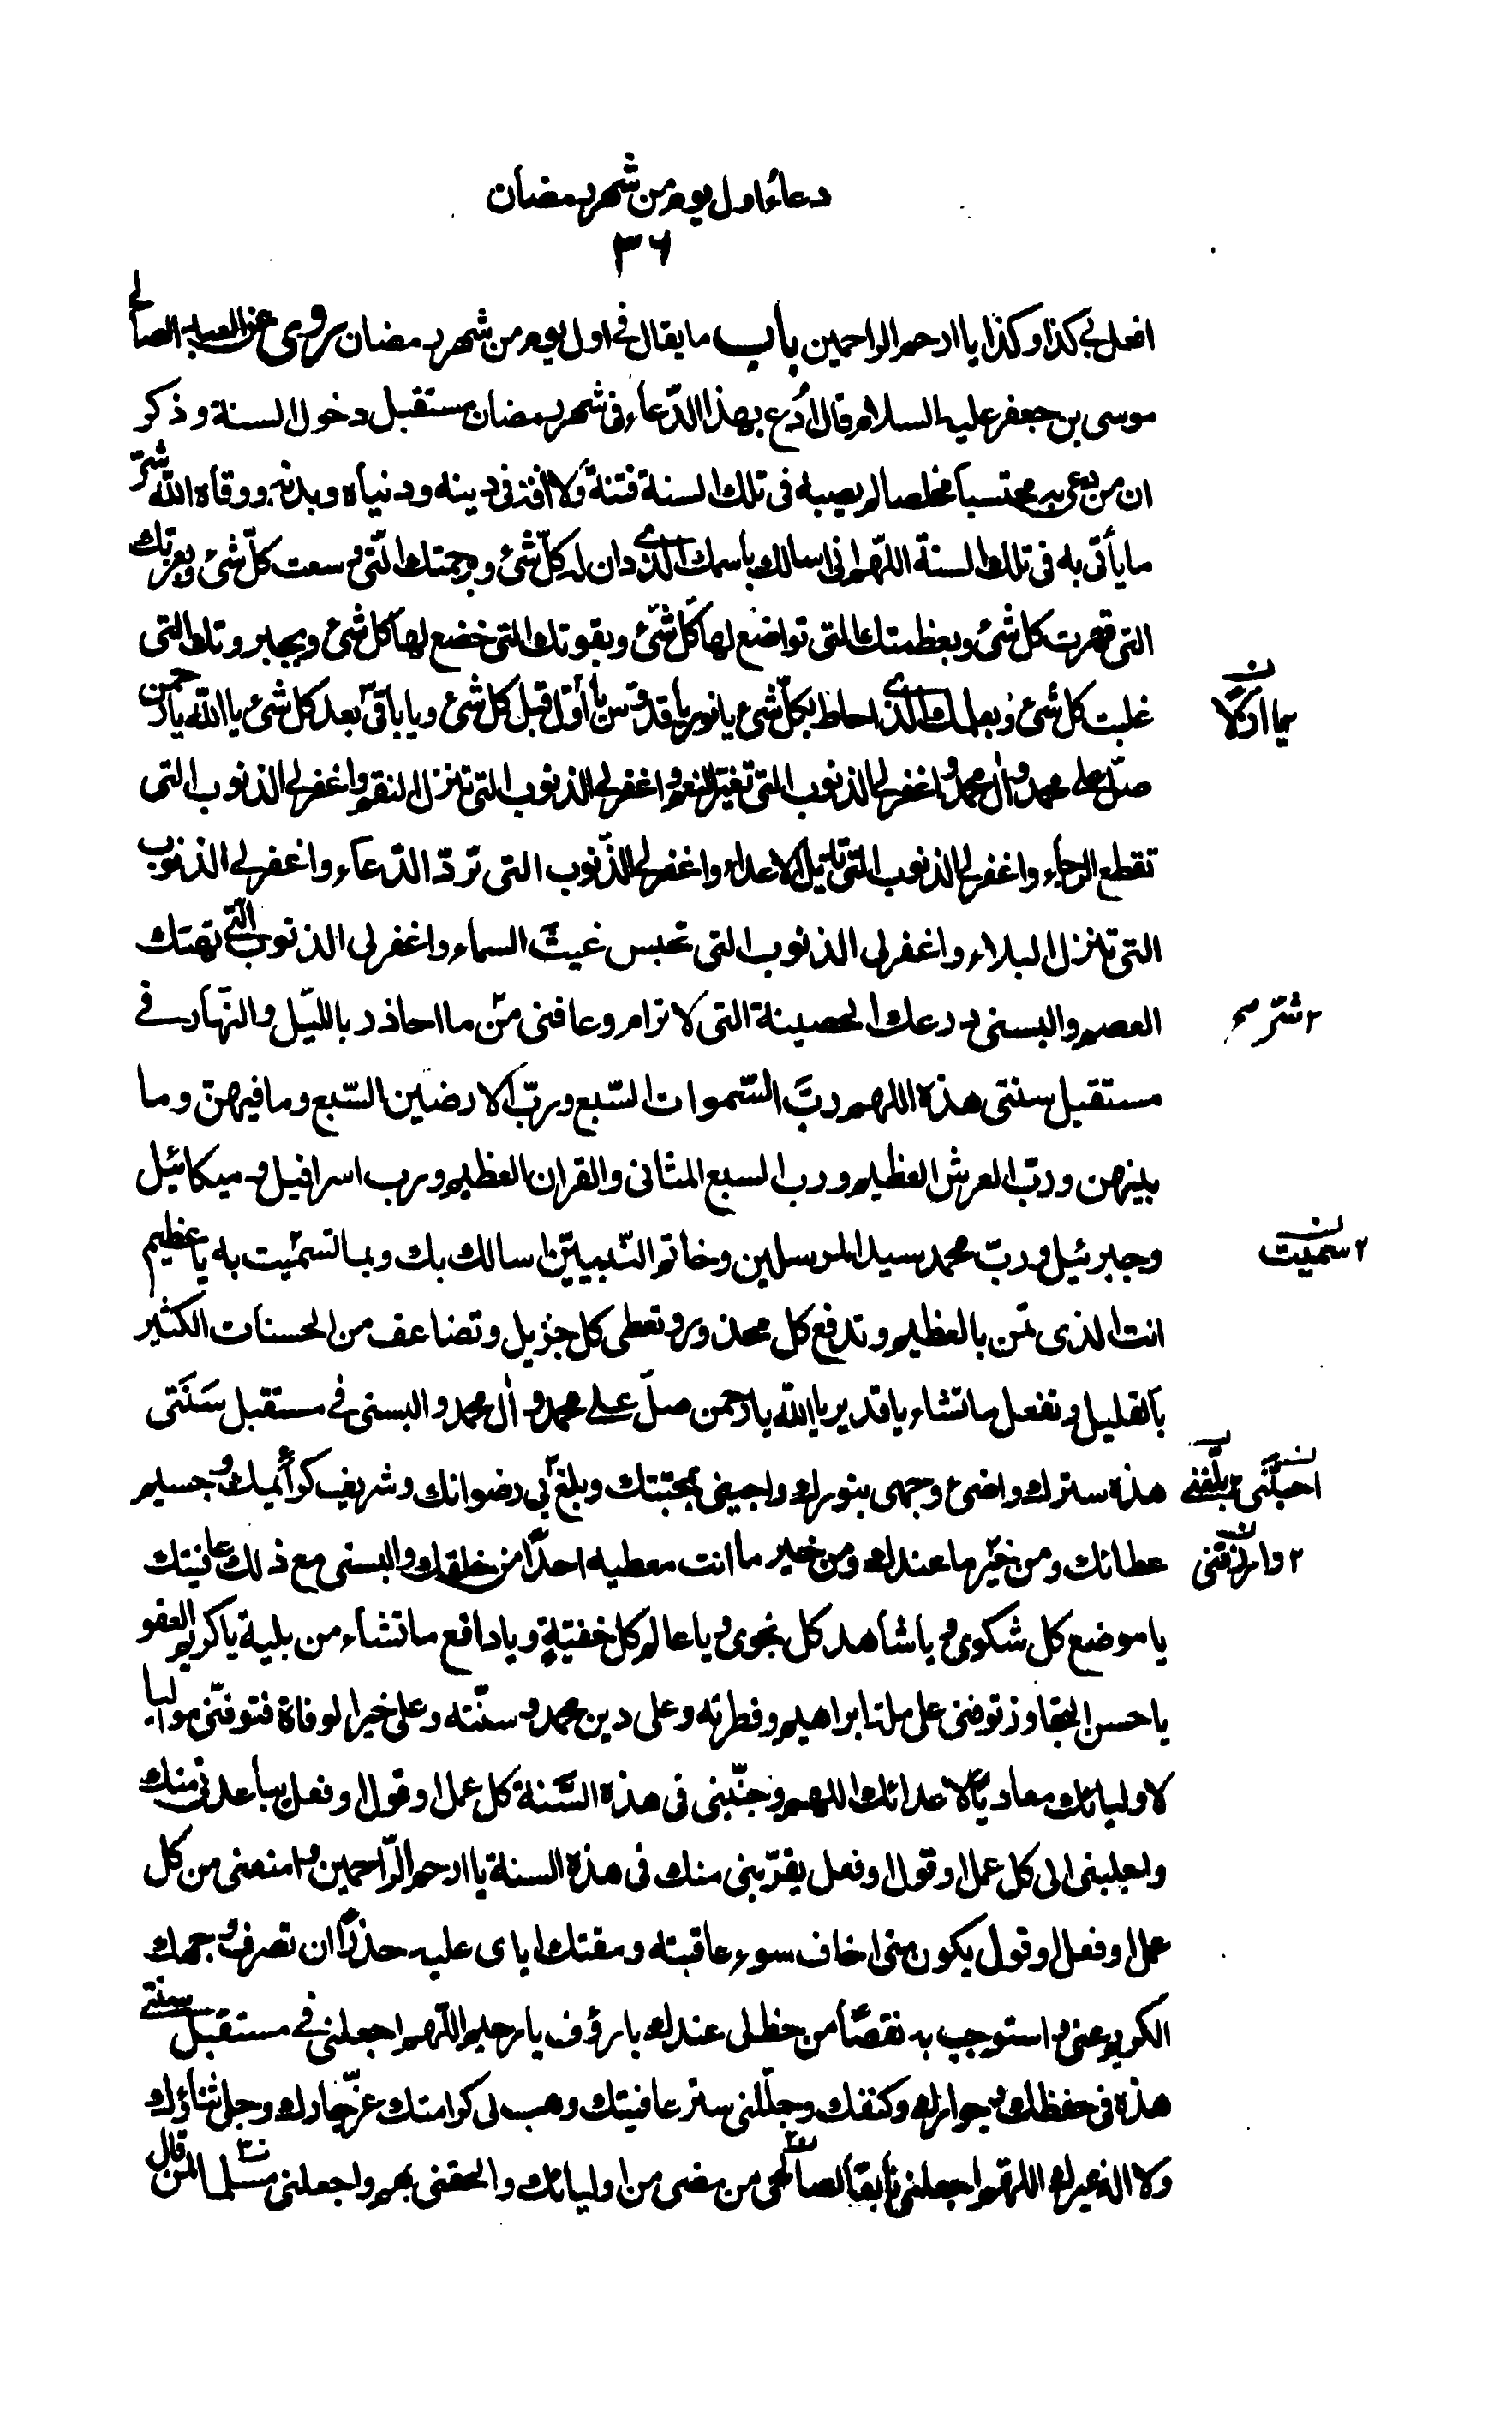 دعاء اول يوم من شهر رمضان
٣٦
افعل بي كذا وكذا يا ارحم الراحمين باب ما يقال في اول يوم من شهر رمضان روى عن العبد الصالح
موسى بن جعفر عليه السلام قال اُدع بهذا الدّعاء في شهر رمضان مستقبل دخول السنة وذكر
ان من دعى به محتسباً مخلصا لم يصبه في تلك السنة فتنة ولا افة في دينه ودنياه وبدنه ووقاه الله شرّ
ما يأتى به في تلك السنة اللّهم انى اسالك باسمك الذي دان له كلّ شئ وبرحمتك الّتى وسعت كلّ شئ وبعزتك
التى قهرت كل شئ وبعظمتك التى تواضع لها كلّ شئ وبقوتك التى خضع لها كل شئ وبجبروتك التى
غلبت كل شئ وبعلمك الذي احاط بكلّ شئ يا نور يا قدوس يا اوّل قبل كل شئ ويا باقىّ بعد كل شئ يا الله يا رحمن
يا ازلا ن
صلّ على محمد وآل محمد واغفر لى الذنوب التى تغيّر النعم واغفر لى الذنوب التى تنزل النقم واغفر لى الذنوب التى
تقطع الرجاء واغفر لى الذنوب التى تديل الاعداء واغفر لى الذّنوب التى تردّ الدّعاء واغفر لى الذنوب
التى تنزل البلاء واغفر لى الذنوب التى تحبس غيث السماء واغفر لى الذنوب الّتى تهتك
العصم والبسنى درعك الحصينة التى لا ترام وعافنى من ما احاذر بالليّل والنّهار في
٢ شرّ
مستقبل سنتى هذه اللهم ربّ السّموات السّبع وربّ الارضين السّبع وما فيهن وما
بينهن وربّ العرش العظيم ورب السبع المثانى والقران العظيم ورب اسرافيل وميكائيل
وجبرئيل وربّ محمد سيد المرسلين وخاتم النّبيين اسالك بك وبما تسمّيت به يا عظيم
٢ سميت ن
انت الذى تمن بالعظيم وتدفع كل محذور وتعطى كل جزيل وتضاعف من الحسنات الكثير
بالقليل وتفعل ما تشاء يا قدير يا الله يا رحمن صلّ على محمد وآل محمد والبسنى في مستقبل سَنَتى
هذه سترك واضئ وجهى بنورك واحينى بمحبّتك وبلغ بى رضوانك وشريف كرائمك وجسيم
احبّنى ٢ بلّغنى
عطائك ومن خير ما عندك ومن خير ما انت معطيه احداً من خلقك والبسنى مع ذلك عافيتك
٢ وارزقنى ن
يا موضع كل شكوى ويا شاهد كل نجوى ويا عالم كل خفيّة ويا دافع ما تشاء من بلية يا كريم العفو
يا حسن التجاوز توفنى على ملة ابراهيم وفطرته وعلى دين محمد وسنّته وعلى خير الوفاة فتوفّنى مواليا
لاوليائك معادياً لاعدائك اللهم وجنّبنى في هذه السّنة كل عمل او قول او فعل يباعدنى منك
واجلبنى الى كل عمل او قول او فعل يقرّبنى منك فى هذه السنة يا ارحم الرّاحمين وامنعنى من كل
عمل او فعل او قول يكون منى اخاف سوء عاقبته ومقتك اياى عليه حذراً ان تصرف وجهك
الكريم عنى واستوجب به نقصاً من حظ لى عندك يا رؤف يا رحيم اللّهم اجعلنى في مستقبل سنتى
هذه فى حفظك وجوارك وكنفك وجلّلنى ستر عافيتك وهب لى كرامتك عزّ جارك وجل ثناؤك
ولا اله غيرك اللهم اجعلنى تابعاً لصالحى من مضى من اوليائك والحقنى بهم واجعلنى مسّلما لمن قال